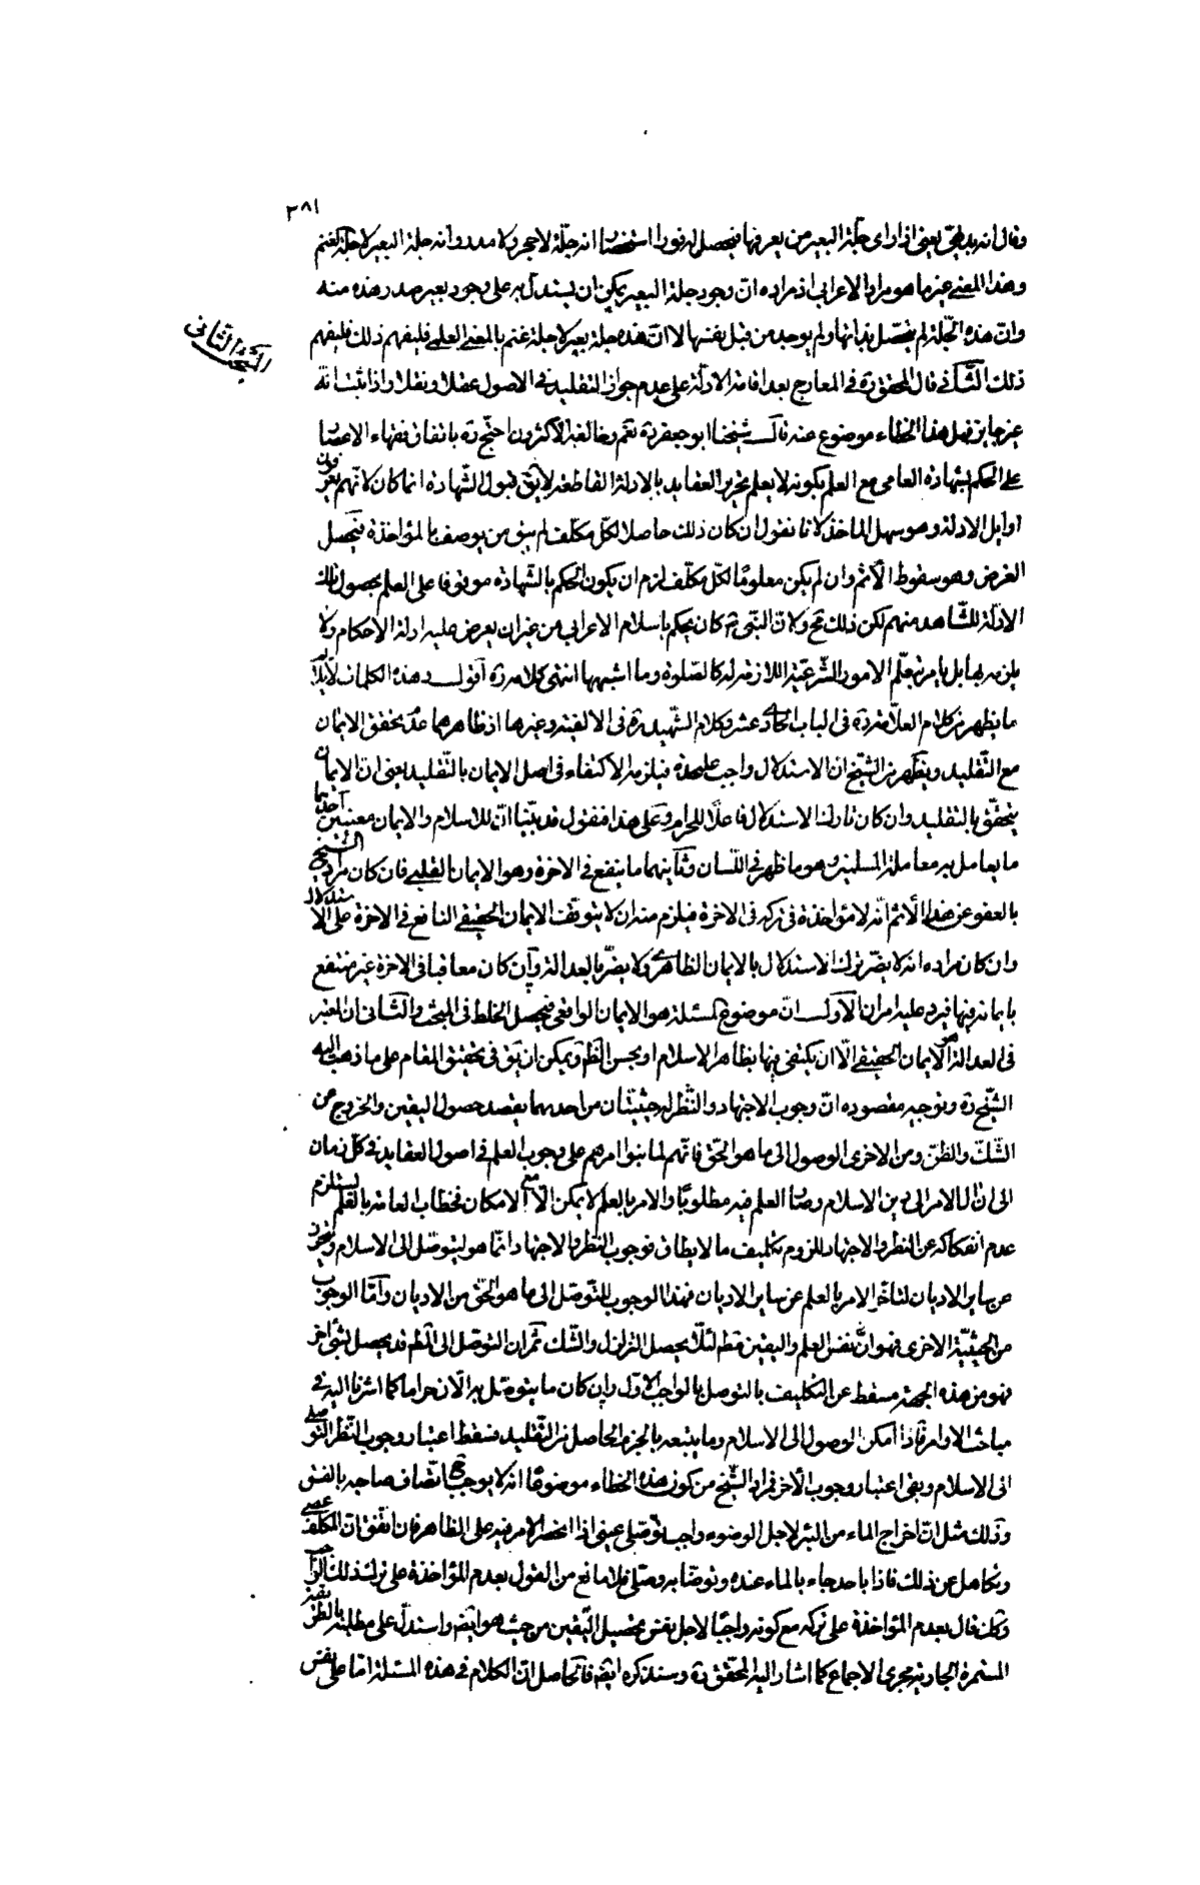 ٣٨١
وقال انه بديهى يعنى اذا راى جلة البعير من يعرفها فيحصل له فورا استحضار انه جلة لا حجر ولا مدر وانه جلة البعير لا جلة الغنم
وهذا المعنى غير ما هو مراد الاعرابى اذ مراده ان وجود جلة البعير يمكن ان يستدل به على وجود بعير صدر هذه منه
وان هذه الجلة لم يحصل بذاتها ولم يوجد من قبل نفسها لا ان هذه جلة بعير لا جلة غنم بالمعنى العلمى فليفهم ذلك فليفهم
البحث الثانى
ذلك الثانى قال المحقق ره فى المعارج بعد اقامة الادلة على عدم جواز التقليد فى الاصول عقلا ونقلا واذا ثبت انه
غير جايز فهل هذا الخطاء موضوع عنه قال شيخنا ابو جعفر ره نعم وخالفه الاكثرون احتج ره باتفاق فقهاء الاعصار
على الحكم بشهادة العامى مع العلم بكونه لا يعلم تحرير العقايد بالادلة القاطعة لا يق قبول الشهادة انما كان لانهم يعرفون
اوايل الادلة وهو سهل الماخذ لانا نقول ان كان ذلك حاصلا لكل مكلف لم يبق من يوصف بالمؤاخذة فيحصل
الغرض وهو سقوط الاثم وان لم يكن معلوما لكل مكلف لزم ان يكون الحكم بالشهادة موقوفا على العلم بحصول تلك
الادلة للشاهد منهم لكن ذلك مح ولان النبى ص كان يحكم باسلام الاعرابى من غير ان يعرض عليه ادلة الاحكام ولا
يلزمه بها بل يامره بتعلم الامور الشرعية اللازمة له كالصلوة وما اشبهها انتهى كلامه ره اقول وهذه الكلمات
ما يظهر من كلام العلامة ره فى الباب الحادى عشر وكلام الشهيد ره فى الالفية وغيرها اذ ظاهرهما عدم تحقق الايمان
مع التقليد ويظهر من الشيخ ان الاستدلال واجب عليحدة فيلزمه الاكتفاء فى اصل الايمان بالتقليد يعنى ان الايمان
يتحقق بالتقليد وان كان تارك الاستدلال فاعلا للحرام وعلى هذا فنقول قد بينا ان للاسلام والايمان معنيين احدهما
ما يعامل به معاملة المسلمين وهو ما ظهر فى اللسان وثانيهما ما ينفع فى الاخرة وهو الايمان القلبى فان كان مراد الشيخ
بالعفو عن هذا الاثم انه لا مؤاخذة فى تركه فى الاخرة فيلزم منه ان لا يتوقف الايمان الحقيقى النافع فى الاخرة على الاستدلال
وان كان مراده انه لا يضر ترك الاستدلال بالايمان الظاهرى ولا يضر بالعدالة وان كان معاقبا فى الاخرة غير منتفع
بايمانه فيها فيرد عليه امران الاول ان موضوع المسئلة هو الايمان الواقعى فيحصل الخلط فى المبحث والثانى ان المعتبر
فى العدالة هو الايمان الحقيقى الا ان يكتفى فيها بظاهر الاسلام او بحسن الظاهر ويمكن ان يق فى تحقيق المقام على ما ذهب اليه
الشيخ ره وتوجيه مقصوده ان وجوب الاجتهاد والنظر له حيثيتان من احدهما يقصد حصول اليقين والخروج من
الشك والظن ومن الاخرى الوصول الى ما هو الحق فانهم لما بنوا امرهم على وجوب العلم فى اصول العقايد فى كل زمان
الى ان ال الامر الى دين الاسلام وصار العلم فيه مطلوبا والامر بالعلم لا يمكن الا مع الامكان فخطاب العامة بالعلم يستلزم
عدم انفكاكه عن النظر والاجتهاد للزوم تكليف ما لا يطاق فوجوب النظر والاجتهاد انما هو ليتوصل الى الاسلام ويتحرز
عن ساير الاديان لتاخر الامر بالعلم عن ساير الاديان فهذا الوجوب للتوصل الى ما هو الحق من الاديان واما الوجوب
من الحيثية الاخرى فهو ان نفس العلم واليقين مطلوب لئلا يحصل التزلزل والشك ثم ان التوصل الى قد يحصل بشئ اخر
فهو من هذه الجهة مسقط عن التكليف بالتوصل بالواجب الاول وان كان ما يتوصل به الان حراما كما اشرنا اليه فى
مباحث الاوامر فاذا امكن الوصول الى الاسلام وما يتبعه بالجزم الحاصل من التقليد فسقط اعتبار وجوب النظر التوصلى
الى الاسلام وبقى اعتبار وجوب الاخر فمراد الشيخ من كون هذه الخطاء موضوعا انه لا يوجب ح اتصاف صاحبه بالفسق
وذلك مثل ان اخراج الماء من البئر لاجل الوضوء واجب توصلى عينى اذا انحصر الامر فيه على الظاهر فان اتفق ان المكلف عصى
وتكاهل عن ذلك فاذا باحد جاء بالماء عنده وتوضا به وصلى فلا مانع من القول بعدم المؤاخذة على ترك ذلك
وكانه قال بعدم المؤاخذة على تركه مع كونه واجبا لاجل نفس تحصيل اليقين من حيث هو ايضا واستدل على مطلبه بالطريقة
المستمرة الجارية مجرى الاجماع كما اشار اليه المحقق ره وسنذكره ايضا فالحاصل ان الكلام فى هذه المسئلة اما على نفس